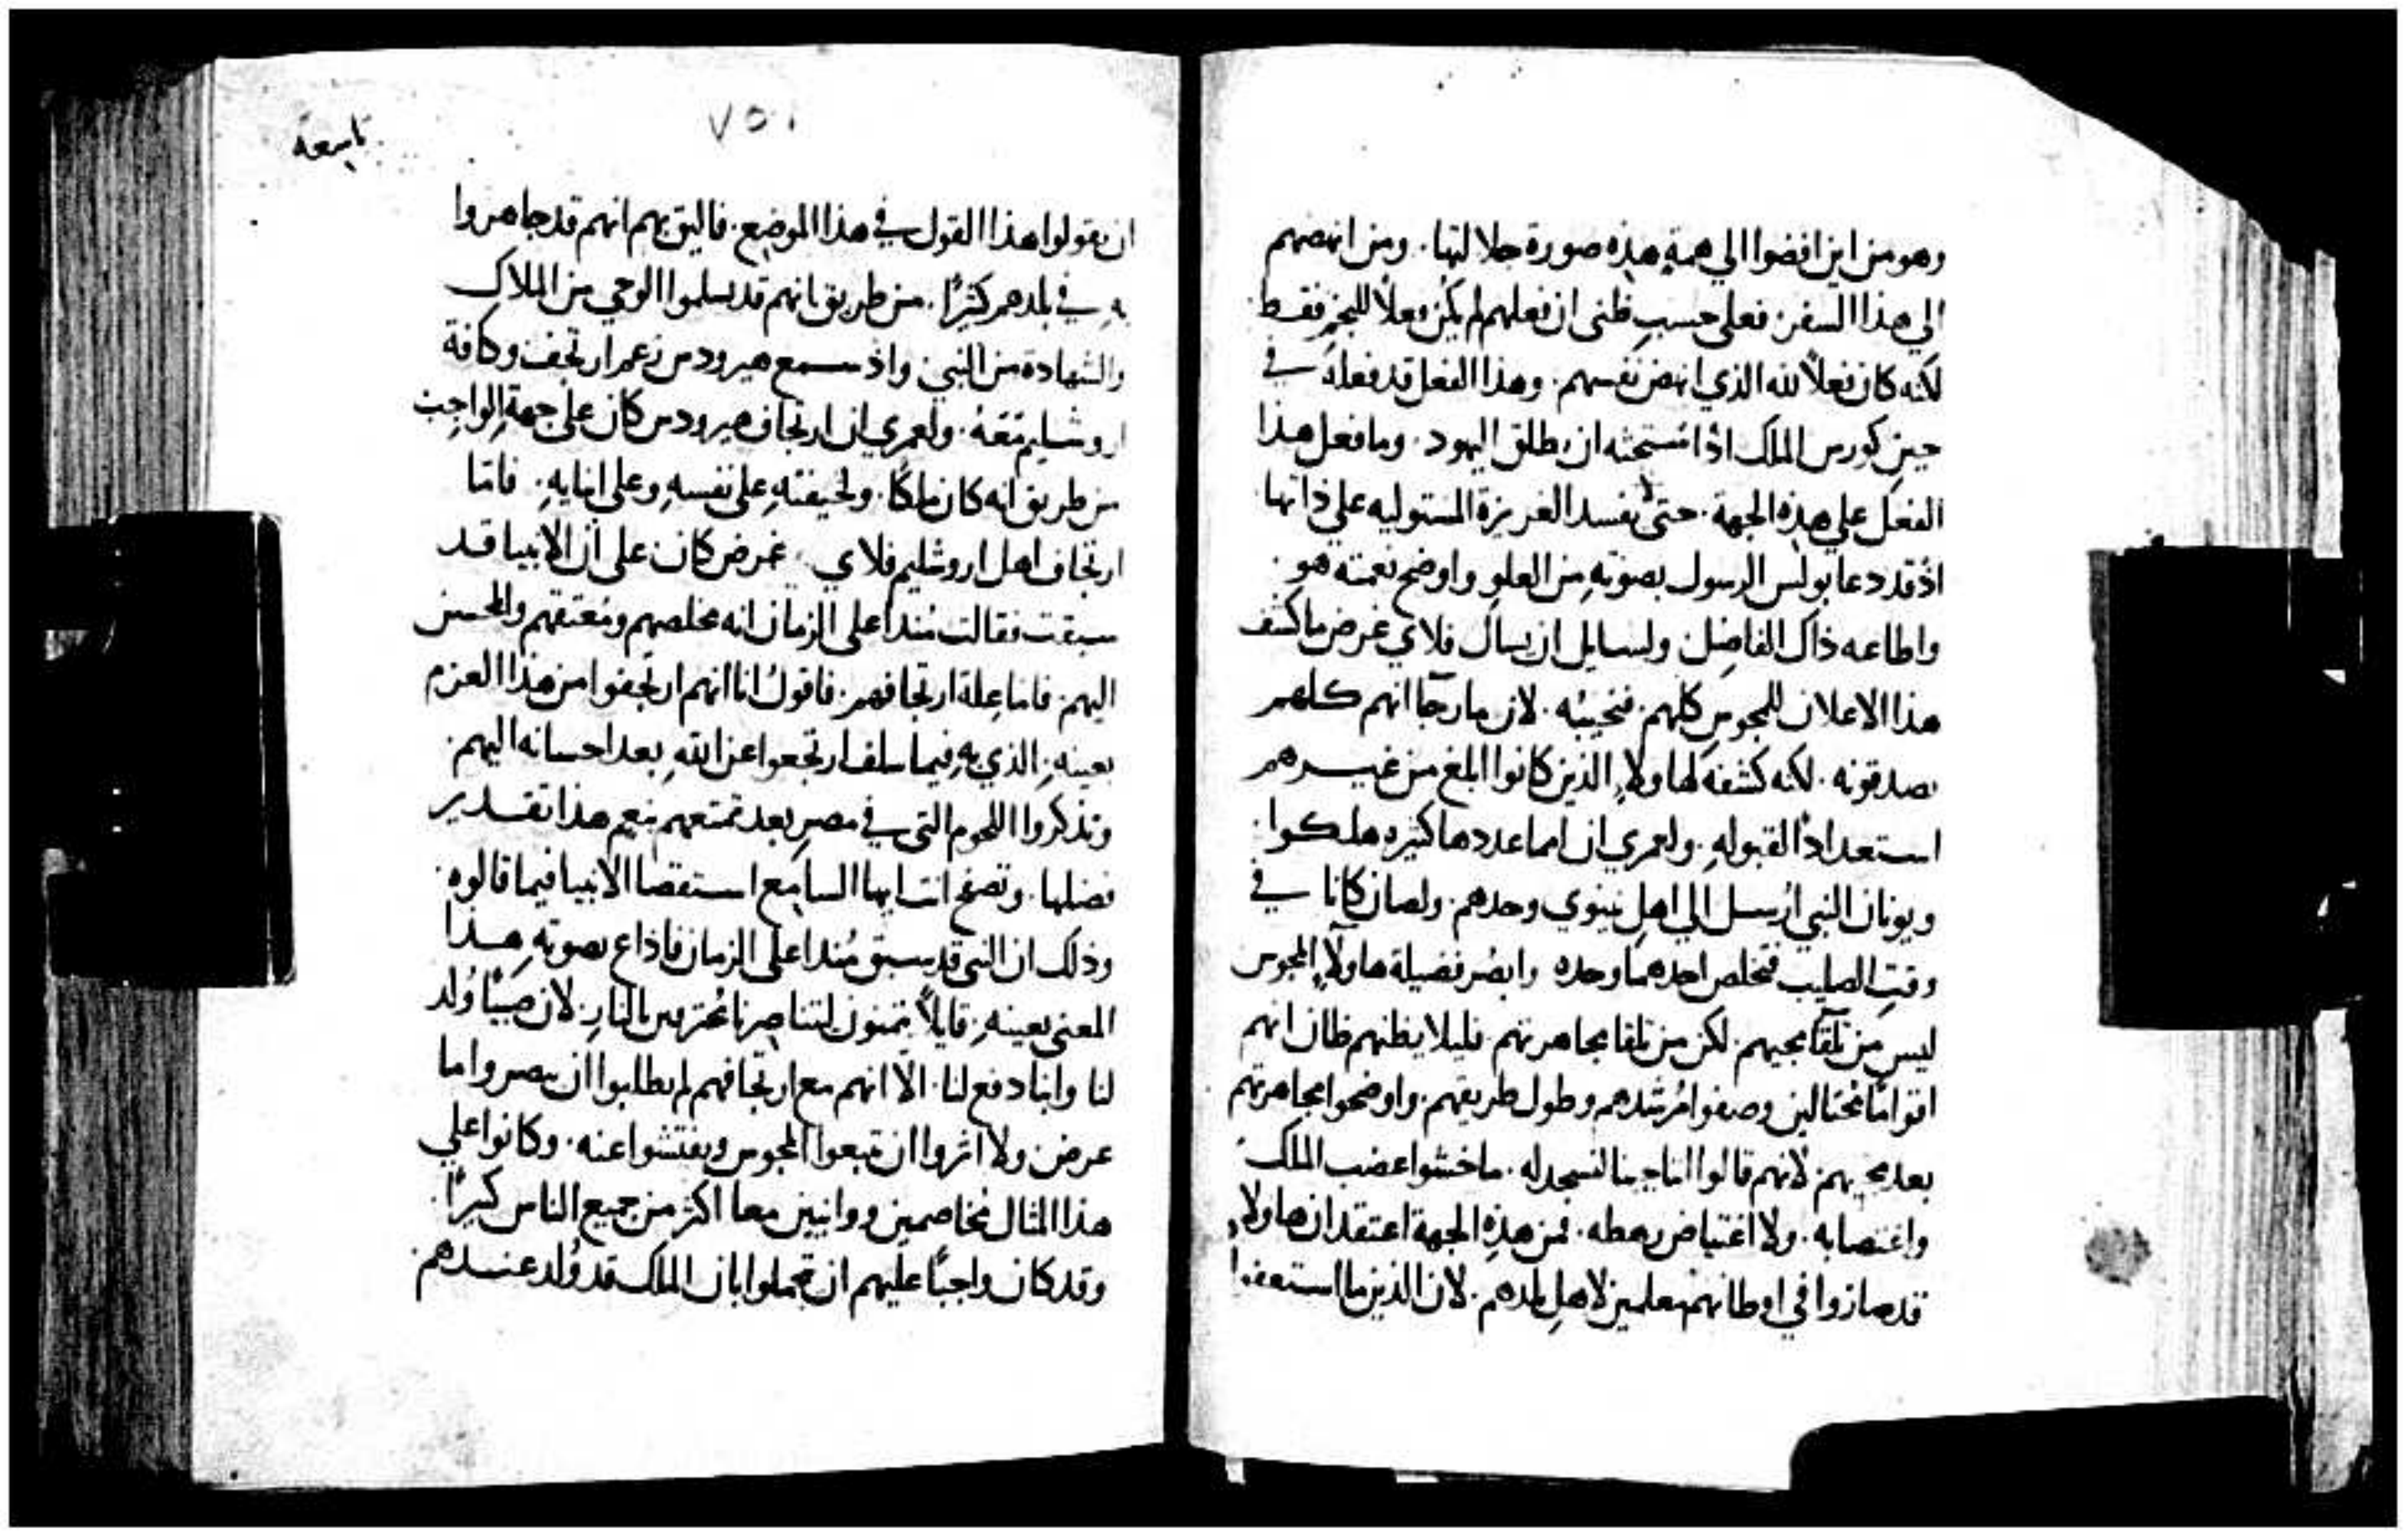 وهو من اين افضوا الي همةٍ هذه صورة جلالتها. ومن انهضهم
الي هذا السفر. فعلي حسب ظني ان فعلهم لم يكن فعلاً للنجم فقط
لكنه كان فعلاً لله الذي انهض نفسهم. وهذا الفعل قد فعله في
حين كورس الملك اذا مستحثه ان يطلق اليهود. وما فعل هذا
الفعل علي هذه الجهة. حتي يفسد الغريزة المستوليه علي ذاتها
اذ قد دعا بولس الرسول بصوته من العلو واوضح نعمته هو
واطاعه ذاك الفاضل ولسايل ان يسال فلاي غرض ما كشف
هذا الاعلان للمجوس كلهم. فنجيبه. لان ما رجا انهم كلهم
يصدقونه. لكنه كشفه لهاولاء الذين كانوا ابلغ من غيرهم
استعداداً لقبوله. ولعمري ان امما عددها كثيره هلكوا
ويونان النبي ارسل الي اهل نينوي وحدهم. ولصان كانا في
وقت الصليب فتخلص احدهما وحده وابصر فضيلة هاولاء المجوس
ليس من تلقا مجيهم لكن من تلقا مجاهرتهم. فليلا يظنهم ظان انهم
اقواماً محتالين وصفوا مرشدهم وطول طريقهم. واوضحوا مجاهرتهم
بعد مجيهم لانهم قالوا اننا جينا لنسجد له. ما خشوا غضب الملك
واغتصابه. ولا اغتياض رهطه. فمن هذه الجهة اعتقد ان هاولاء
قد صاروا في اوطانهم معلمين لاهل بلدهم. لان الذين ما استعفوا
٧٥١
تاسعة
ان يقولوا هذا القول في هذا الموضع. فاليق بهم انهم قد جاهروا
به في بلدهم كثيراً. من طريق انهم قد تسلموا الوحي من الملاك
والشهادة من النبي واذ سمع هيرودس زعم ارتجف وكافة
اروشليم معه. ولعمري ان ارتجاف هيرودس كان علي جهة الواجب
من طريق انه كان ملكًا. ولخيفته علي نفسه وعلي ابنايه. فاما
ارتجاف اهل اروشليم فلاي غرض كان علي ان الانبيا قد
سبقت فقالت منذ اعلي الزمان انه مخلصهم ومعتقهم والمحسن
اليهم. فاما علة ارتجافهم. فاقول انا انهم ارتجفوا من هذا العزم
بعينه. الذي به فيما سلف ارتجعوا عن الله بعد احسانه اليهم
وتذكروا اللحوم التي في مصر بعد تمتعهم بنعم هذا تقدير
فضلها. وتصفح انت ايها السامع استقصا الانبيا فيما قالوه
وذلك ان النبي قد سبق منذ اعلي الزمان فاذاع بصوته هذا
المعني بعينه قايلاً يتمنون لتتناصرنا محترقين بالنار. لان صبيًا وُلد
لنا وابنا دفع لنا. الا انهم مع ارتجافهم لم يطلبوا ان يبصروا ما
عرض ولا اثروا ان يتبعوا المجوس ويفتشوا عنه. وكانوا علي
هذا المثال مخاصمين ووانيين معا اكثر من جميع الناس كثيراً
وقد كان واجباً عليهم ان يتجملوا بان الملك قد وُلد عندهم